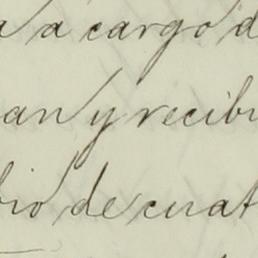 a a cargo d
an y recibi
bio de cuat